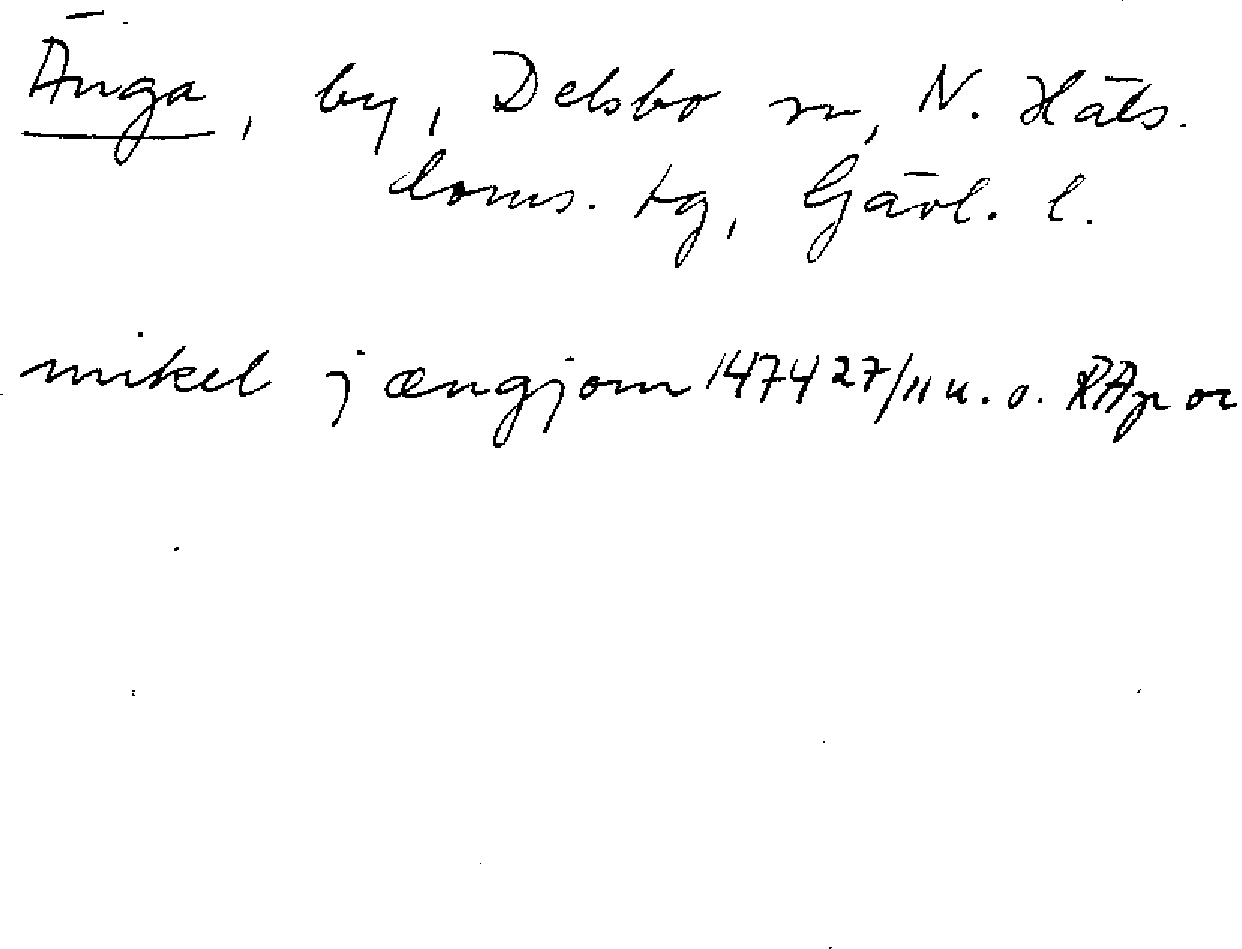 Änga, by, Delsbo sn, N. Häls.
doms. tg, Gävl. l.
mikel j ængjom 1474 27/11 u. o. RAp or